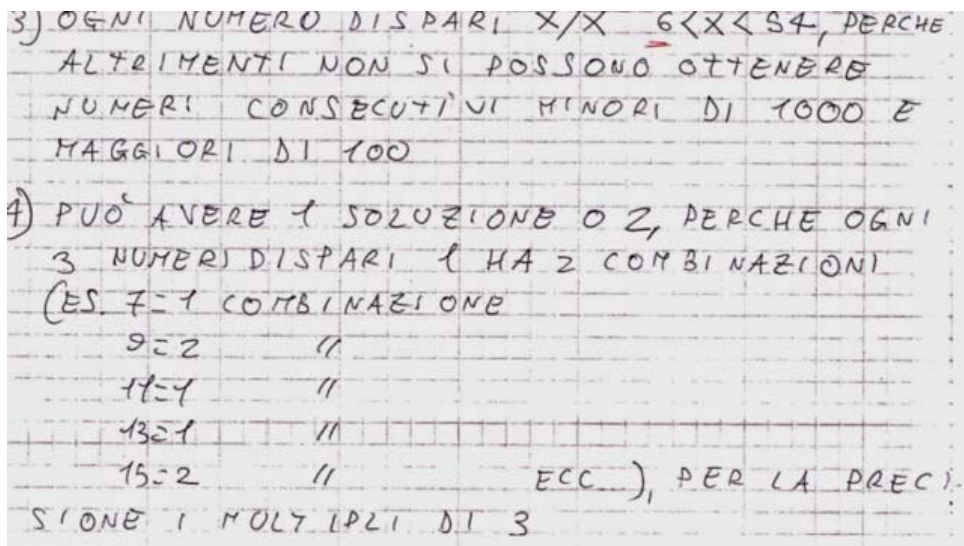 3) OGNI NUMERO DISPARI X/X 6<X<54, PERCHE
ALTRIMENTI NON SI POSSONO OTTENERE
NUMERI CONSECUTIVI MINORI DI 1000 E
MAGGIORI DI 100
4) PUÒ AVERE 1 SOLUZIONE O 2, PERCHE OGNI
3 NUMERI DISPARI 1 HA 2 COMBINAZIONI
(ES. 7=1 COMBINAZIONE
9=2 "
11=1 "
13=1 "
15=2 " ECC...), PER LA PRECI
SIONE I MOLTIPLI DI 3